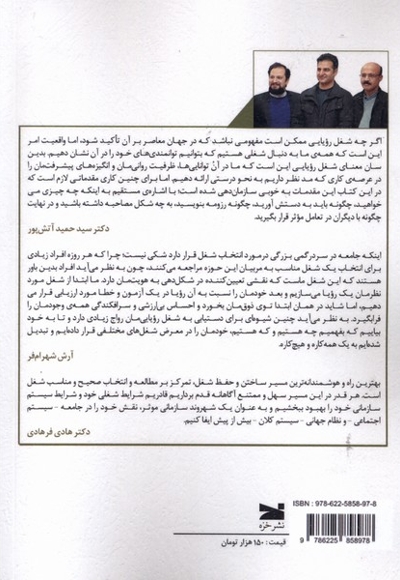 اگر چه شغل رؤیایی ممکن است مفهومی نباشد که در جهان معاصر بر آن تأکید شود، اما واقعیت امر
این است که همه‌ی ما به دنبال شغلی هستیم که بتوانیم توانمندی‌های خود را در آن نشان دهیم. بدین
سان معنای شغل رؤیایی این است که ما در آن توانایی‌ها، ظرفیت روانی‌مان و انگیزه‌های پیشرفت‌مان را
در عرصه‌ی کاری که مد نظر داریم به نحو درستی ارائه دهیم. اما برای چنین کاری مقدماتی لازم است که
در این کتاب این مقدمات به خوبی سازمان‌دهی شده است؛ با اشاره‌ی مستقیم به اینکه چه چیزی می
خواهید، چگونه باید به دستش آورید، چگونه رزومه بنویسید، به چه شکل مصاحبه داشته باشید و در نهایت
چگونه با دیگران در تعامل مؤثر قرار بگیرید.
دکتر سید حمید آتش‌پور
اینکه جامعه در سردرگمی بزرگی در مورد انتخاب شغل قرار دارد شکی نیست؛ چرا که هر روزه افراد زیادی
برای انتخاب یک شغل مناسب به مربیان این حوزه مراجعه می‌کنند، چون به نظر می‌آید افراد بدین باور
هستند که این شغل ماست که نقشی تعیین‌کننده در شکل‌دهی به هویت‌مان دارد. ما ابتدا از شغل مورد
نظرمان یک رؤیا می‌سازیم و بعد خودمان را نسبت به آن رؤیا در یک آزمون و خطا مورد ارزیابی قرار می
دهیم، اما شاید در همان ابتدا توی ذوق‌مان بخورد و احساس بی‌ارزشی و سرافکندگی همه‌ی وجودمان را
فرابگیرد. به نظر می‌آید چنین شیوه‌ای برای دستیابی به شغل رؤیایی‌مان رواج زیادی دارد و تا به خود
بیاییم که بفهمیم چه هستیم و که هستیم، خودمان را در معرض شغل‌های مختلفی قرار داده‌ایم و تبدیل
شده‌ایم به یک همه‌کاره و هیچ‌کاره.
آرش شهرام‌فر
بهترین راه و هوشمندانه‌ترین مسیر ساختن و حفظ شغل، تمرکز بر مطالعه و انتخاب صحیح و مناسب شغل
است. هر قدر در این مسیر سهل و ممتنع آگاهانه قدم برداریم قادریم شرایط شغلی خود و شرایط سیستم
سازمانی خود را بهبود ببخشیم و به عنوان یک شهروند سازمانی موثر، نقش خود را در جامعه - سیستم
اجتماعی - و نظام جهانی - سیستم کلان - بیش از پیش ایفا کنیم.
دکتر هادی فرهادی
ISBN : 978-622-5858-97-8
9 786225 858978
نشر خزه
قیمت: ۱۵۰ هزار تومان